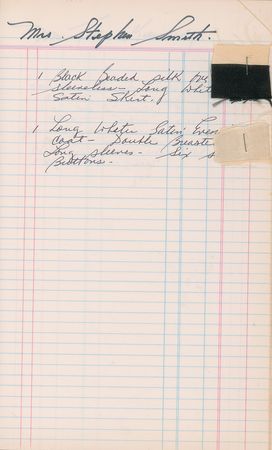 Mrs. Stephen Smith.
1 Black beaded silk
sleeveless - Long Whit
Satin Skirt.
1 Long White Satin Even
coat - Double Breaste
Long sleeves - Six s
Buttons.